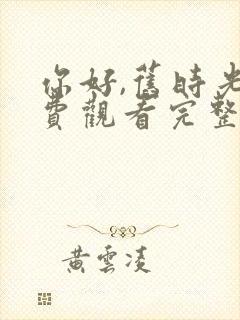 你好,舊時光
費觀看完整
黃雲凌